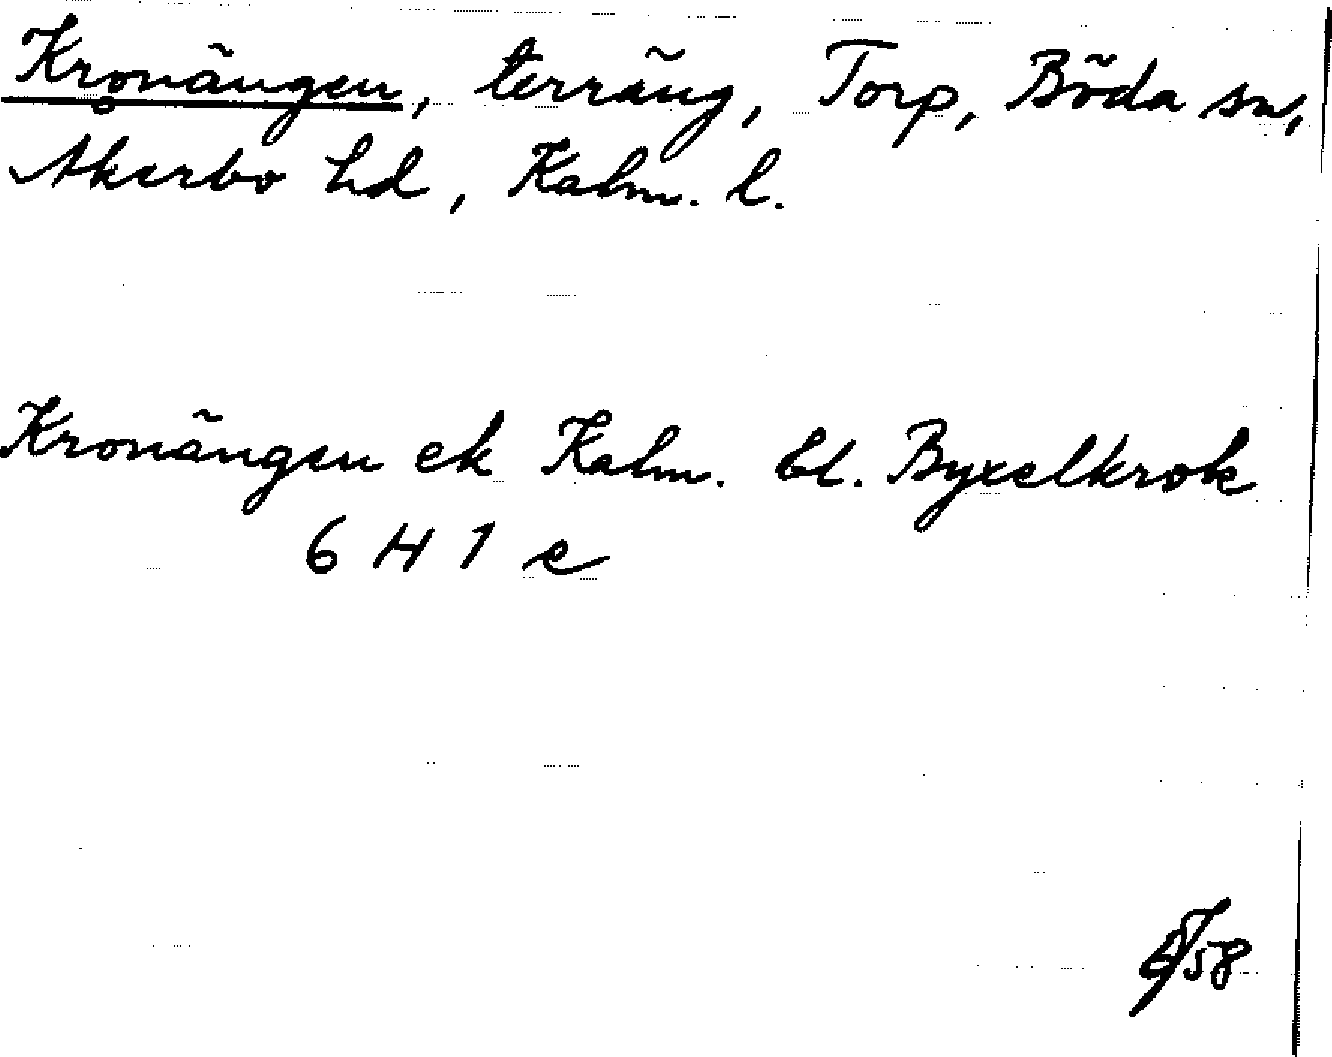 Kronängen, terräng, Torp, Böda sn,
Åkerbo hd, Kalm. l.
Kronängen ek Kalm. bl. Byxelkrok
6 H 1 e
58